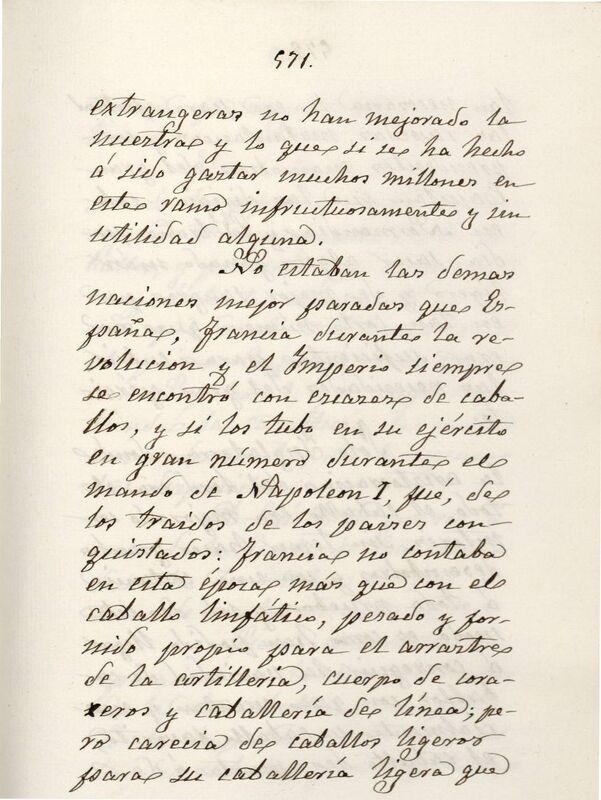 571.
extrangeras no han mejorado la
nuestra y lo que si se ha hecho
á sido gastar muchos millones en
este ramo infructuosamente y sin
utilidad alguna.
No estaban las demas
naciones mejor paradas que Es-
paña, Francia durante la re-
volucion y el Imperio siempre
se encontró con escases de caba-
llos, y si los tubo en su ejército
en gran número durante el
mando de Napoleon I, fué, de
los traidos de los paises con-
quistados: Francia no contaba
en esta época más que con el
caballo linfático, pesado y for-
nido propio para el arrastre
de la artilleria, cuerpo de cora-
zeros y caballería de línea; pe-
ro carecia de caballos ligeros
para su caballería ligera que